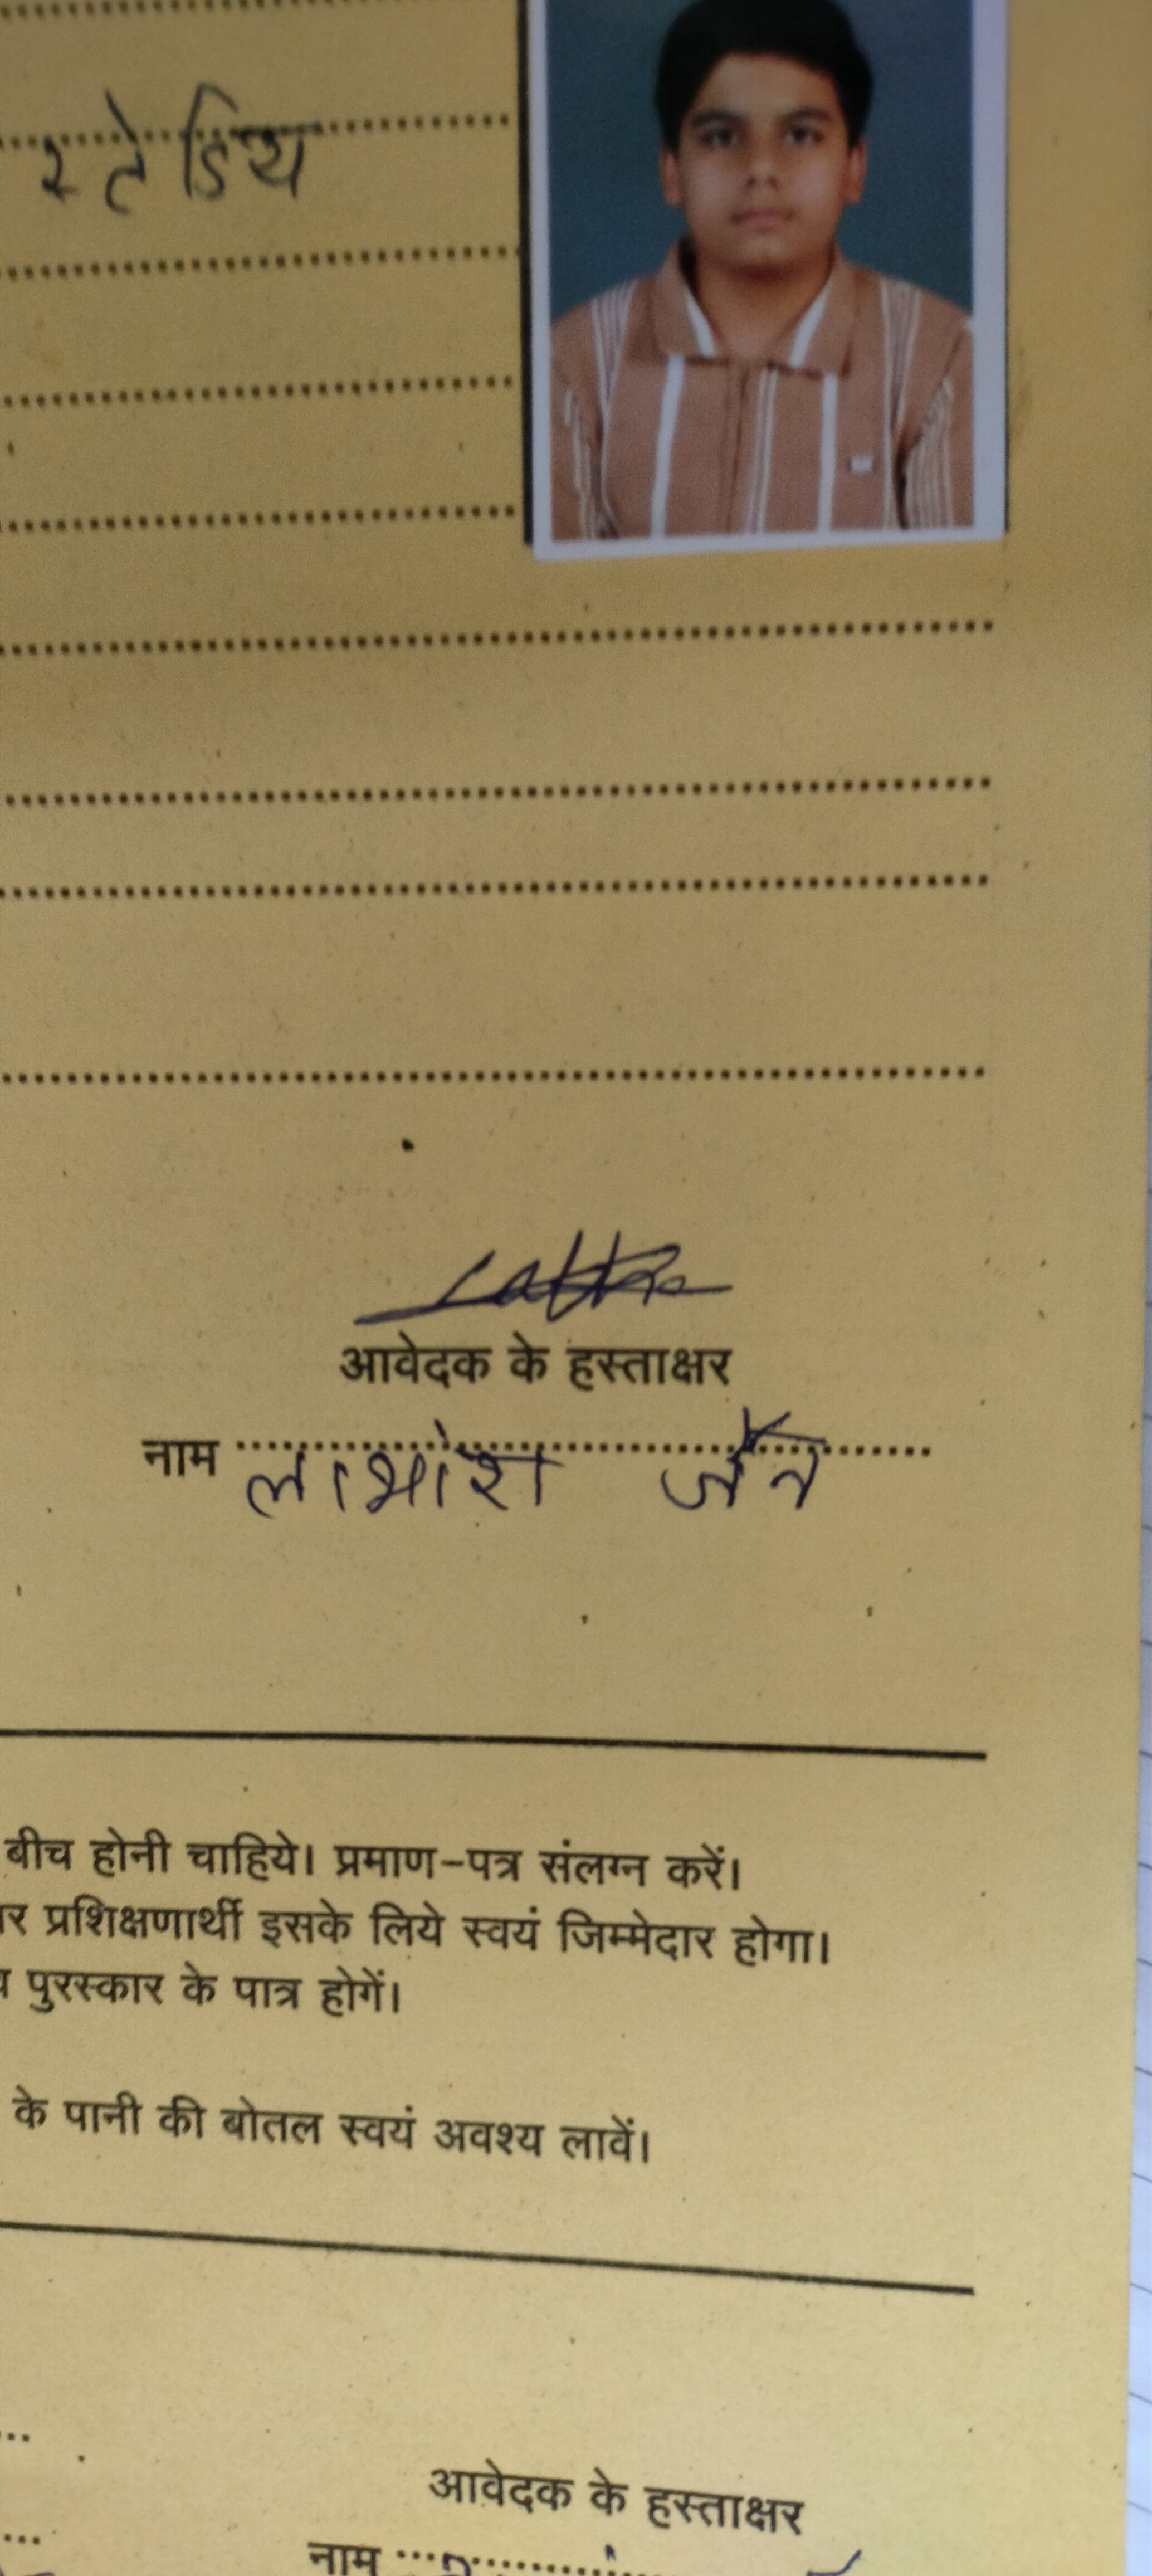 स्टेडिय
आवेदक के हस्ताक्षर
नाम लाभांश जैन
बीच होनी चाहिये। प्रमाण-पत्र संलग्न करें।
प्रशिक्षणार्थी इसके लिये स्वयं जिम्मेदार होगा।
पुरस्कार के पात्र होगें।
के पानी की बोतल स्वयं अवश्य लावें।
आवेदक के हस्ताक्षर
नाम